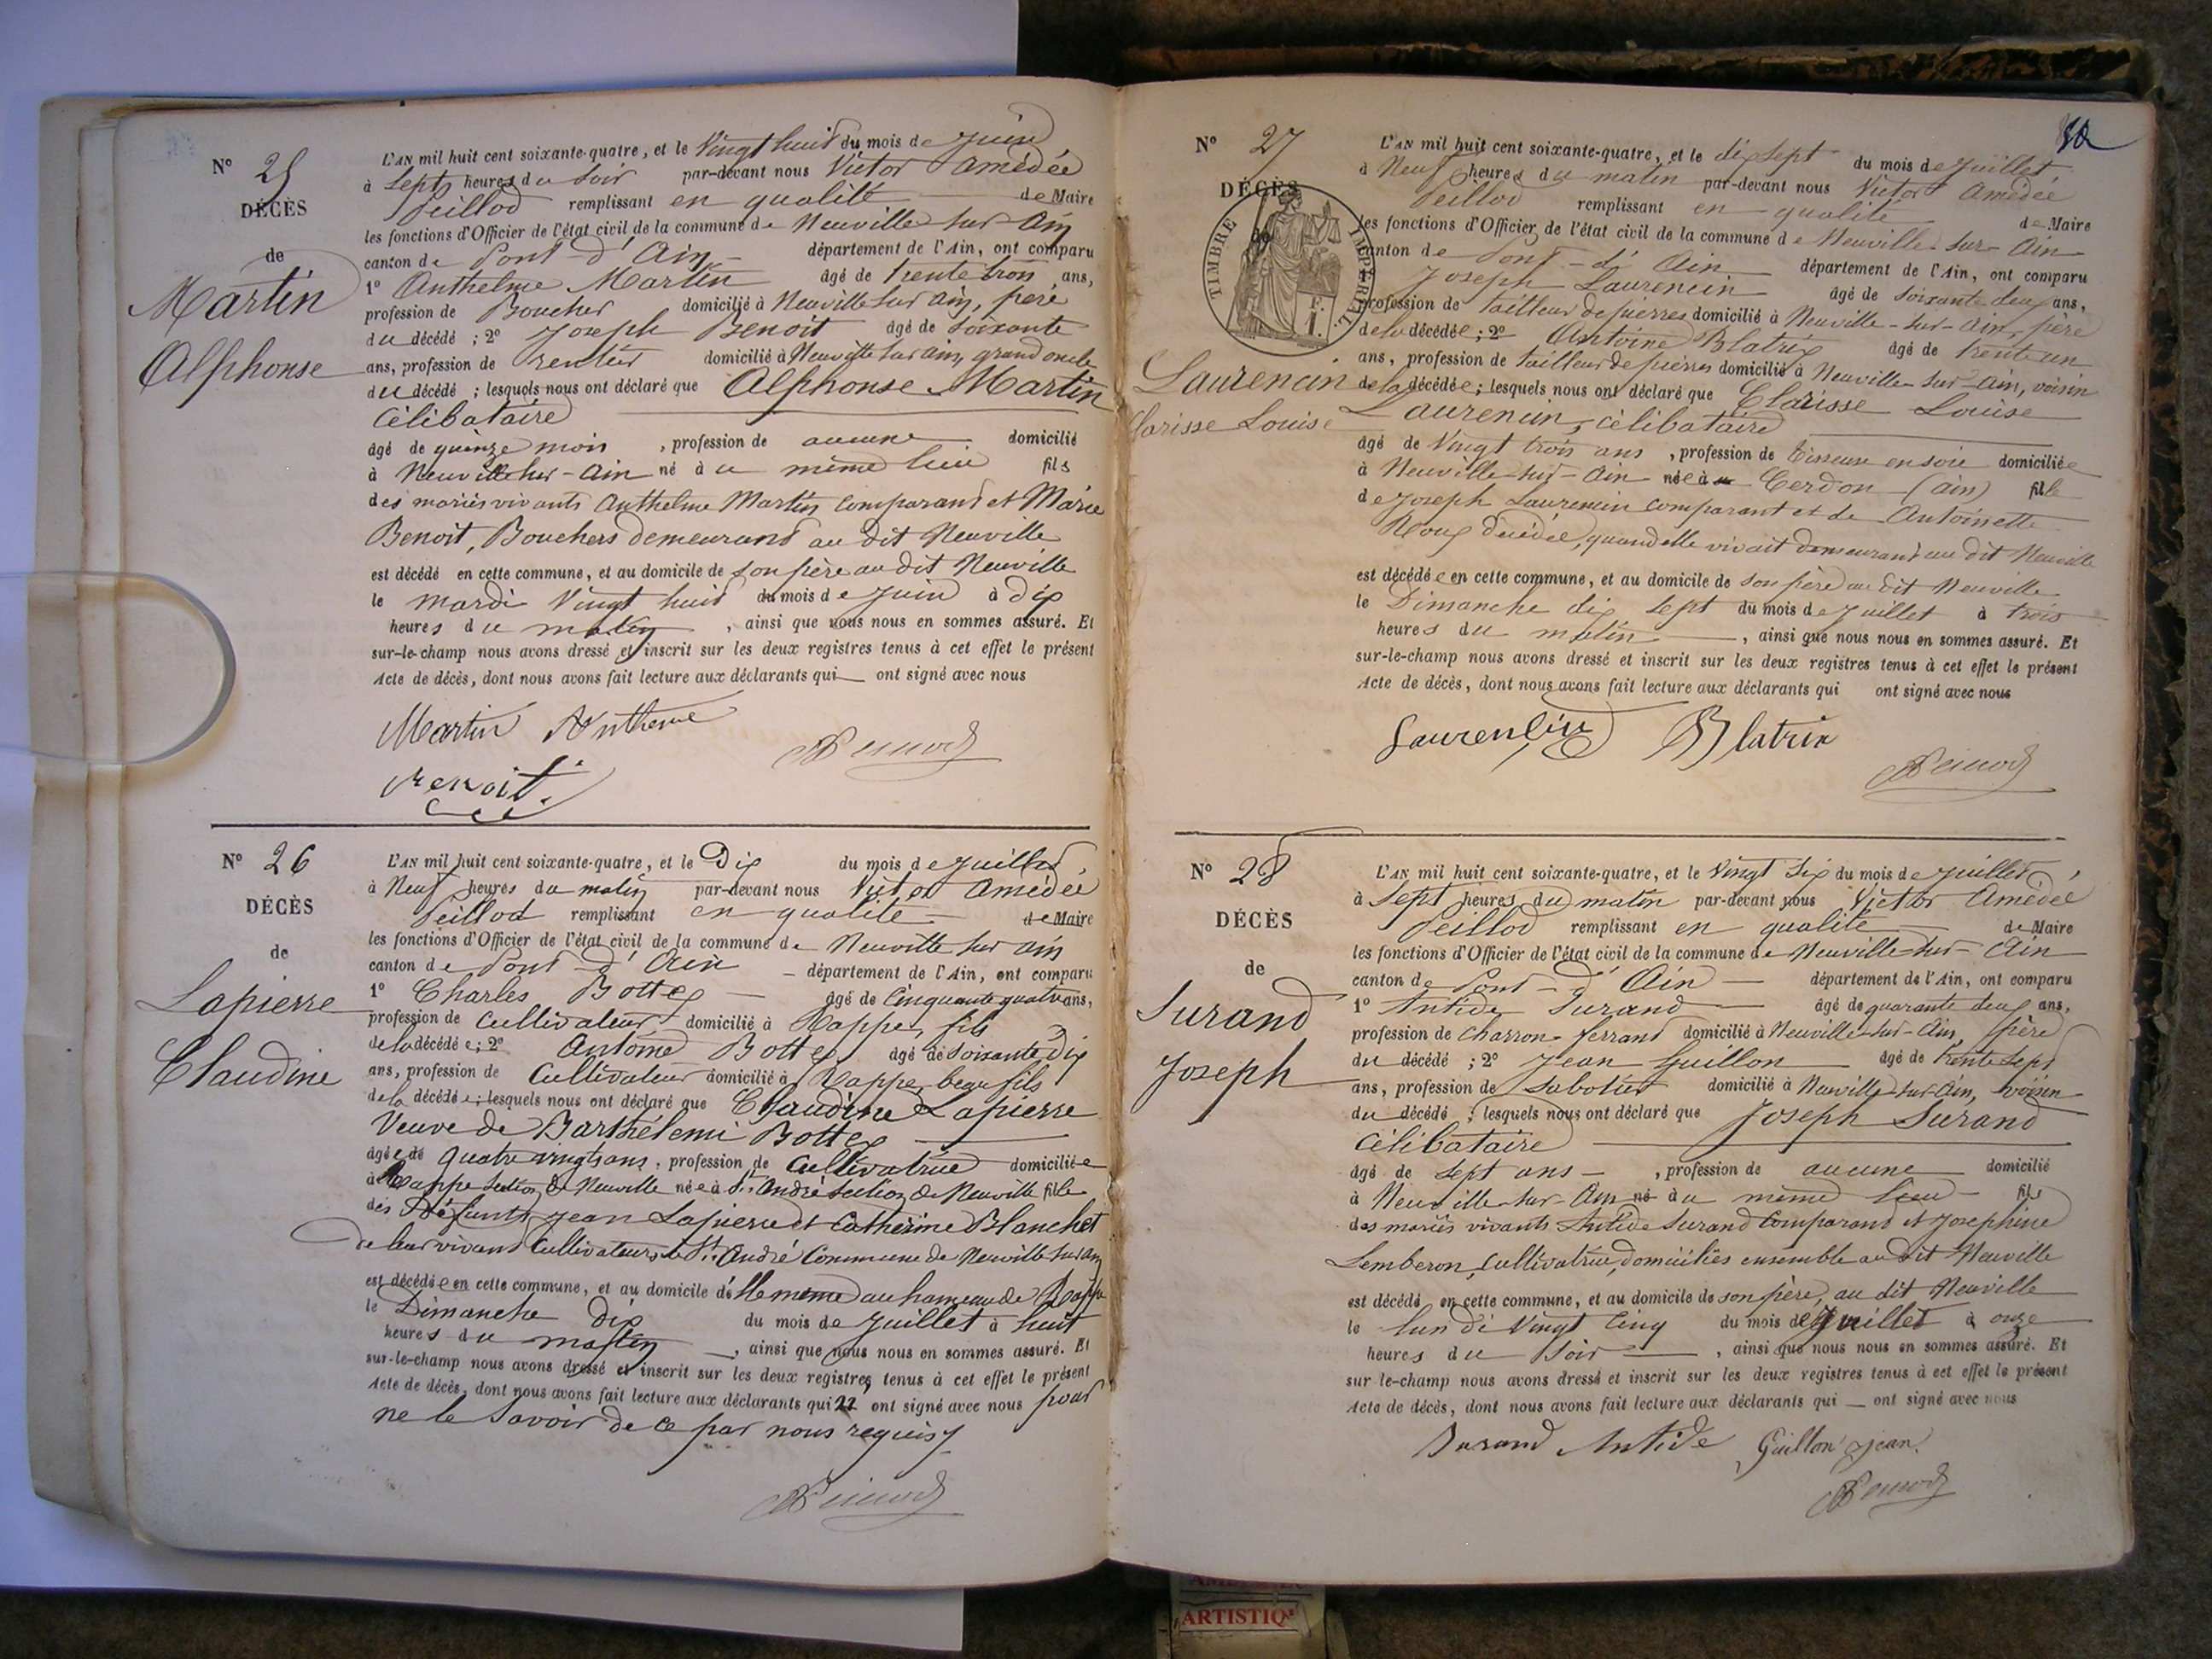 N° 25
DÉCÈS
de
Martin
Alphonse
L'AN mil huit cent soixante-quatre, et le Vingt huit du mois de Juin
à Sept heures du Soir par-devant nous Victor Amédée
Peillod remplissant en qualité de Maire
les fonctions d'Officier de l'état civil de la commune de Neuville sur Ain
canton de Pont-d'Ain département de l'Ain, ont comparu
1° Anthelme Martin âgé de trente trois ans,
profession de Boucher domicilié à Neuville sur Ain, père
du décédé ; 2° Joseph Benoit âgé de soixante
ans, profession de rentier domicilié à Neuville sur Ain, grand oncle
du décédé ; lesquels nous ont déclaré que Alphonse Martin
Célibataire
âgé de quinze mois , profession de aucune domicilié
à Neuville sur-Ain né à u même lieu fils
des mariés vivants Anthelme Martin comparant et Marie
Benoit, Bouchers demeurant au dit Neuville
est décédé en cette commune, et au domicile de son père au dit Neuville
le mardi Vingt huit du mois de Juin à dix
heures du matin , ainsi que nous nous en sommes assuré. Et
sur-le-champ nous avons dressé et inscrit sur les deux registres tenus à cet effet le présent
Acte de décès, dont nous avons fait lecture aux déclarants qui ont signé avec nous
Martin Antheme
Benoit
N° 26
DÉCÈS
de
Lapierre
Claudine
L'AN mil huit cent soixante-quatre, et le Dix du mois de Juillet
à Neuf heures du matin par-devant nous Victor Amédée
Peillod remplissant en qualité de Maire
les fonctions d'Officier de l'état civil de la commune de Neuville sur Ain
canton de Pont-d'Ain département de l'Ain, ont comparu
1° Charles Bottex âgé de Cinquante quatre ans,
profession de Cultivateur domicilié à Rappe, fils
de la décédée ; 2° Antoine Bottex âgé de Soixante Dix
ans, profession de Cultivateur domicilié à Rappe, beau fils
de la décédée ; lesquels nous ont déclaré que Claudine Lapierre
Veuve de Barthelemi Bottex
âgée de quatre vingts ans , profession de Cultivatrice domiciliée
à Rappe Section de Neuville née à St. André Section de Neuville fille
des Défunts Jean Lapierre et Catherine Blanchet
de leur vivant Cultivateurs à St. André Commune de Neuville sur ain
est décédée en cette commune, et au domicile d'elle même au hameau de Rappe
le Dimanche dix du mois de Juillet à huit
heures du matin , ainsi que nous nous en sommes assuré. Et
sur-le-champ nous avons dressé et inscrit sur les deux registres tenus à cet effet le présent
Acte de décès, dont nous avons fait lecture aux déclarants qui n' ont signé avec nous pour
ne le Savoir de ce par nous requis
N° 27
DÉCÈS
de
TIMBRE IMPÉRIAL
Laurencin
Clarisse Louise
L'AN mil huit cent soixante-quatre, et le dix sept du mois de Juillet
à Neuf heures du matin par-devant nous Victor Amédée
Peillod remplissant en qualité de Maire
les fonctions d'Officier de l'état civil de la commune de Neuville-sur-Ain
canton de Pont-d'Ain département de l'Ain, ont comparu
Joseph Laurencin âgé de Soixante deux ans,
profession de tailleur de pierres domicilié à Neuville-sur-Ain, père
de la décédée ; 2° Antoine Blatrix âgé de trente un
ans, profession de tailleur de pierres domicilié à Neuville-sur-Ain, voisin
de la décédée ; lesquels nous ont déclaré que Clarisse Louise
Laurencin, célibataire
âgé de Vingt trois ans , profession de Tisseuse en soie domiciliée
à Neuville-sur-Ain née à Cerdon (Ain) fille
de Joseph Laurencin comparant et de Antoinette
décédée, quand elle vivait demeurant au dit Neuville
est décédée en cette commune, et au domicile de son père au dit Neuville
le Dimanche dix sept du mois de Juillet à trois
heures du matin , ainsi que nous nous en sommes assuré. Et
sur-le-champ nous avons dressé et inscrit sur les deux registres tenus à cet effet le présent
Acte de décès, dont nous avons fait lecture aux déclarants qui ont signé avec nous
Laurencin Blatrix
N° 28
DÉCÈS
de
Durand
Joseph
L'AN mil huit cent soixante-quatre, et le Vingt Six du mois de Juillet
à Sept heures du matin par-devant nous Victor Amédée
Peillod remplissant en qualité de Maire
les fonctions d'Officier de l'état civil de la commune de Neuville-sur-Ain
canton de Pont-d'Ain département de l'Ain, ont comparu
1° Antide Durand âgé de quarante deux ans,
profession de charron-ferrant domicilié à Neuville-sur-Ain, père
du décédé ; 2° Jean Guillon âgé de trente sept
ans, profession de Sabotier domicilié à Neuville-sur-Ain, voisin
du décédé ; lesquels nous ont déclaré que Joseph Durand
Célibataire
âgé de Sept ans , profession de aucune domicilié
à Neuville-sur-Ain né à u même lieu fils
des mariés vivants Antide Durand comparant et Josephine
Lemberon, Cultivatrice, domiciliés ensemble au dit Neuville
est décédé en cette commune, et au domicile de son père, au dit Neuville
le lundi Vingt Cinq du mois de Juillet à onze
heures du Soir , ainsi que nous nous en sommes assuré. Et
sur le-champ nous avons dressé et inscrit sur les deux registres tenus à cet effet le présent
Acte de décès, dont nous avons fait lecture aux déclarants qui ont signé avec nous
Durand Antide Guillon Jean
ARTISTIQ